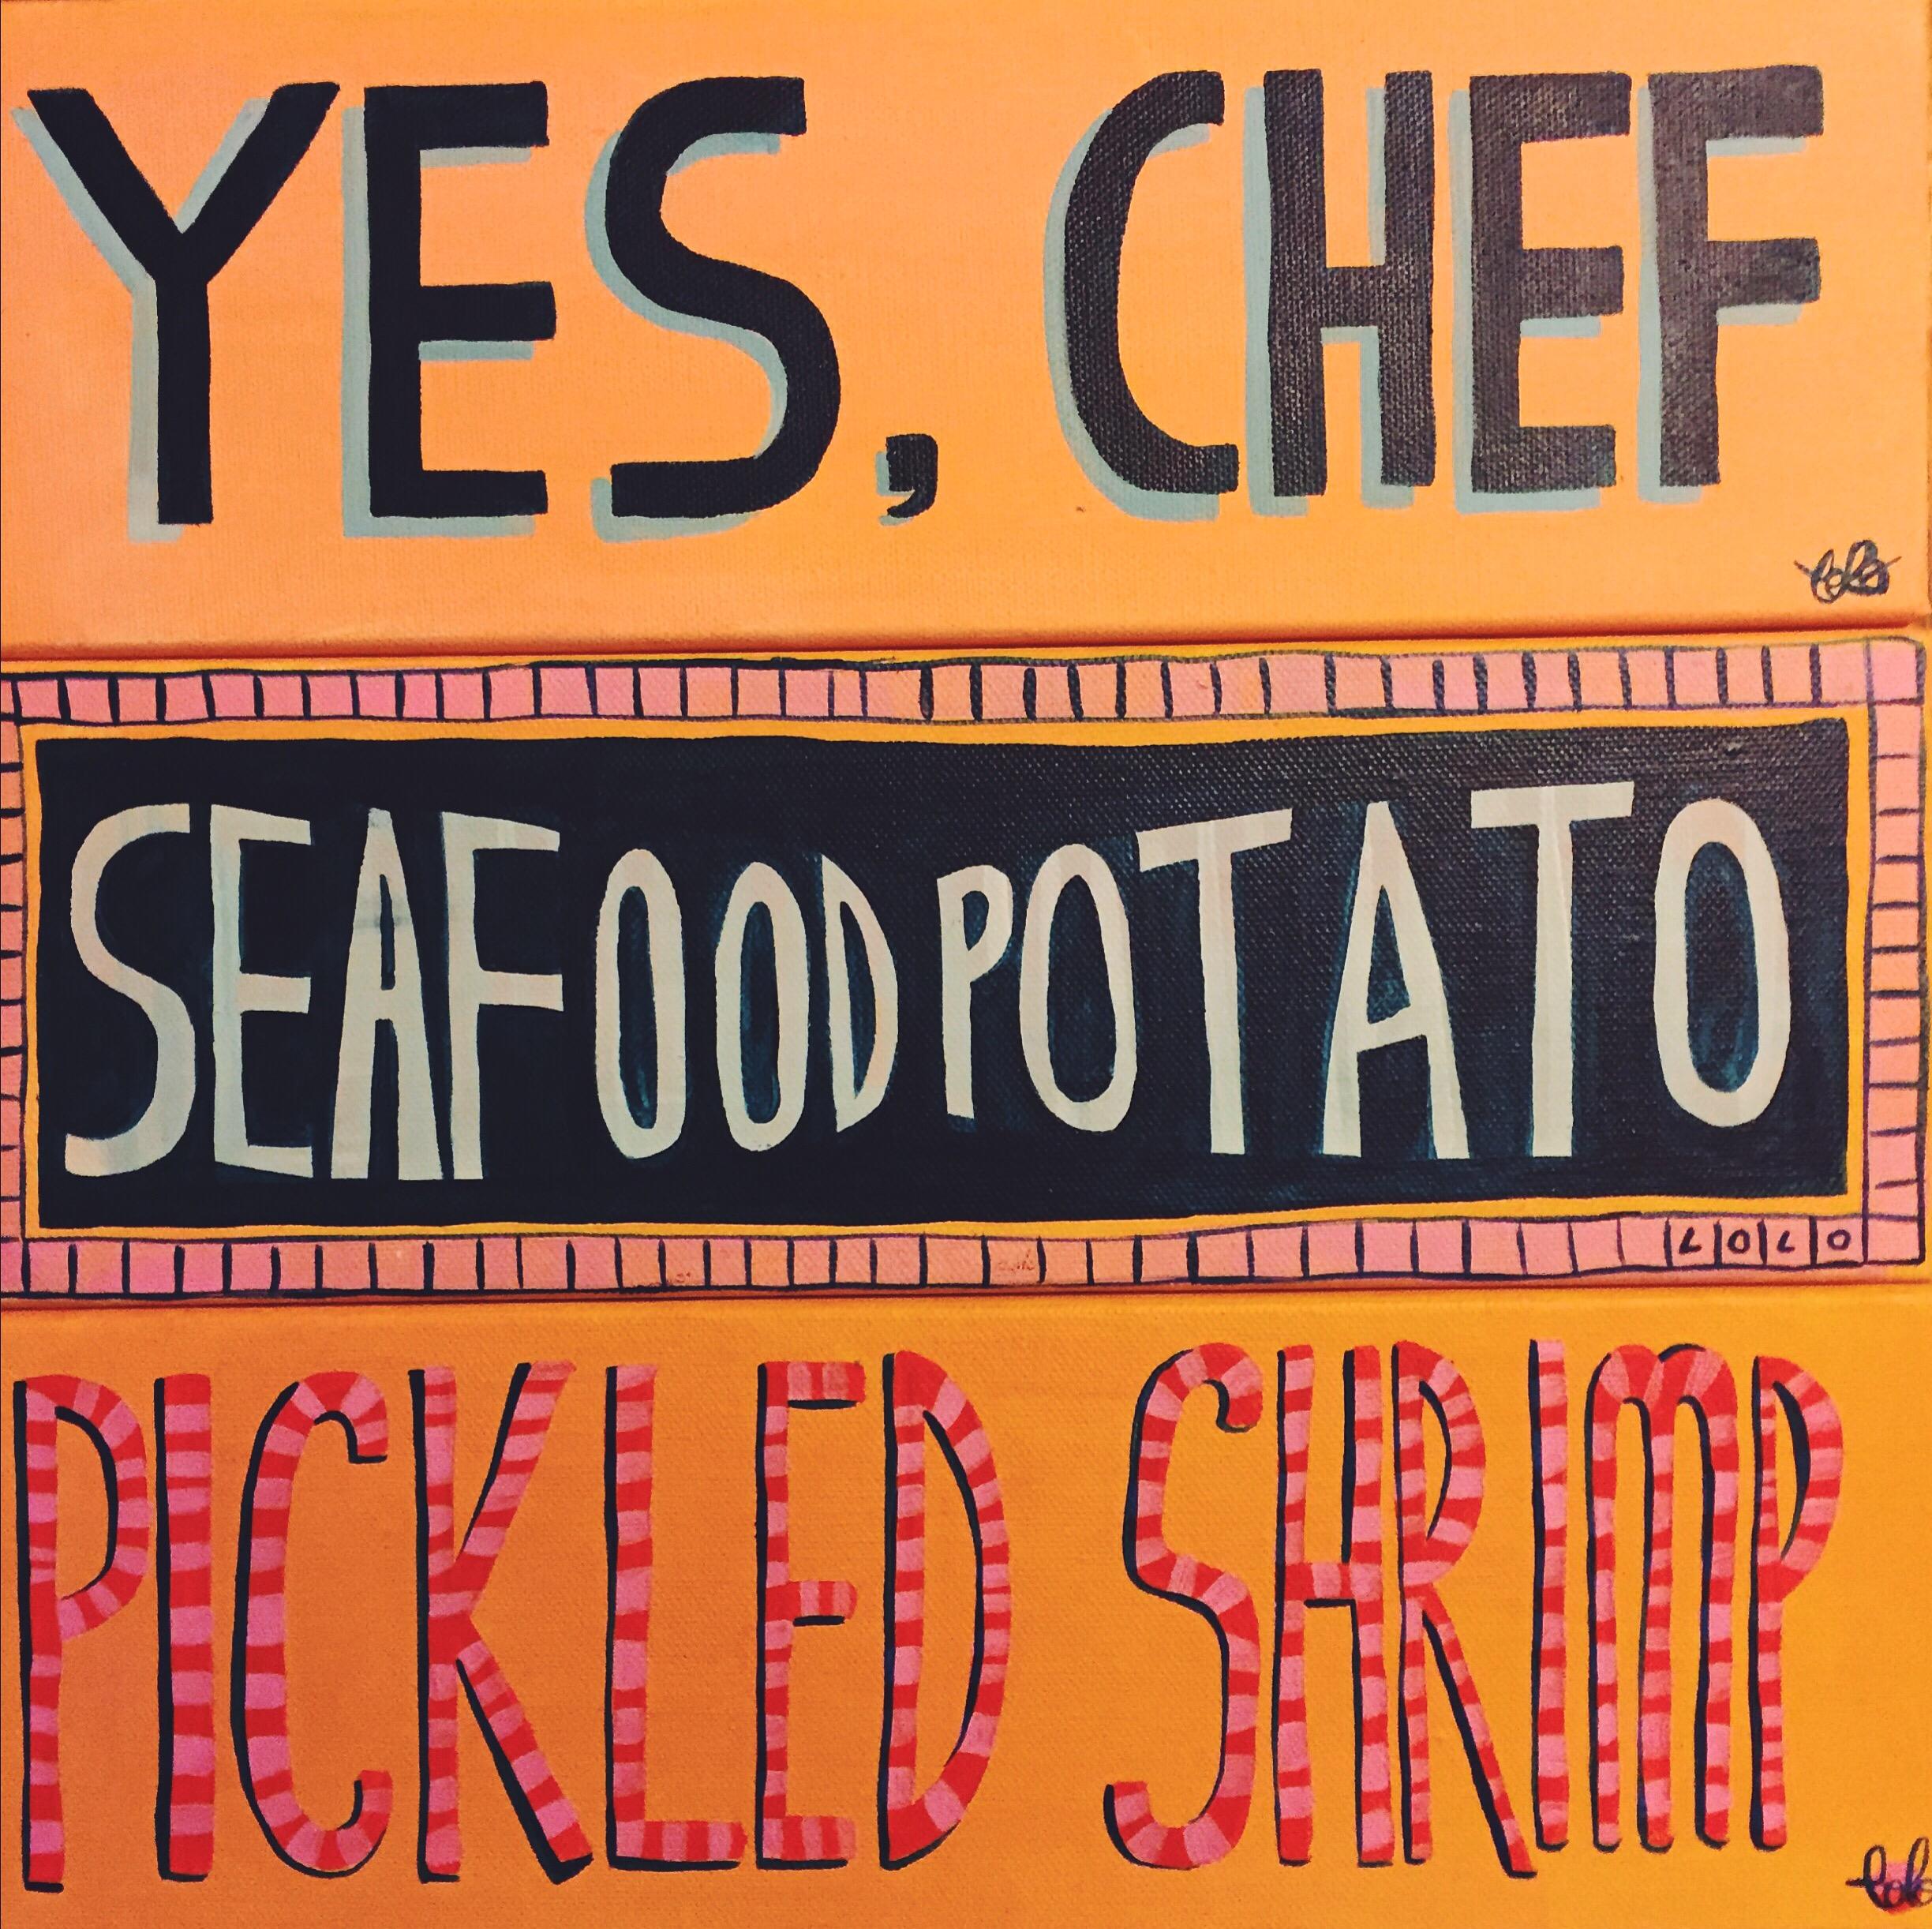 YES, CHEF
lolo
SEAFOOD POTATO
LOLO
PICKLED SHRIMP
lolo